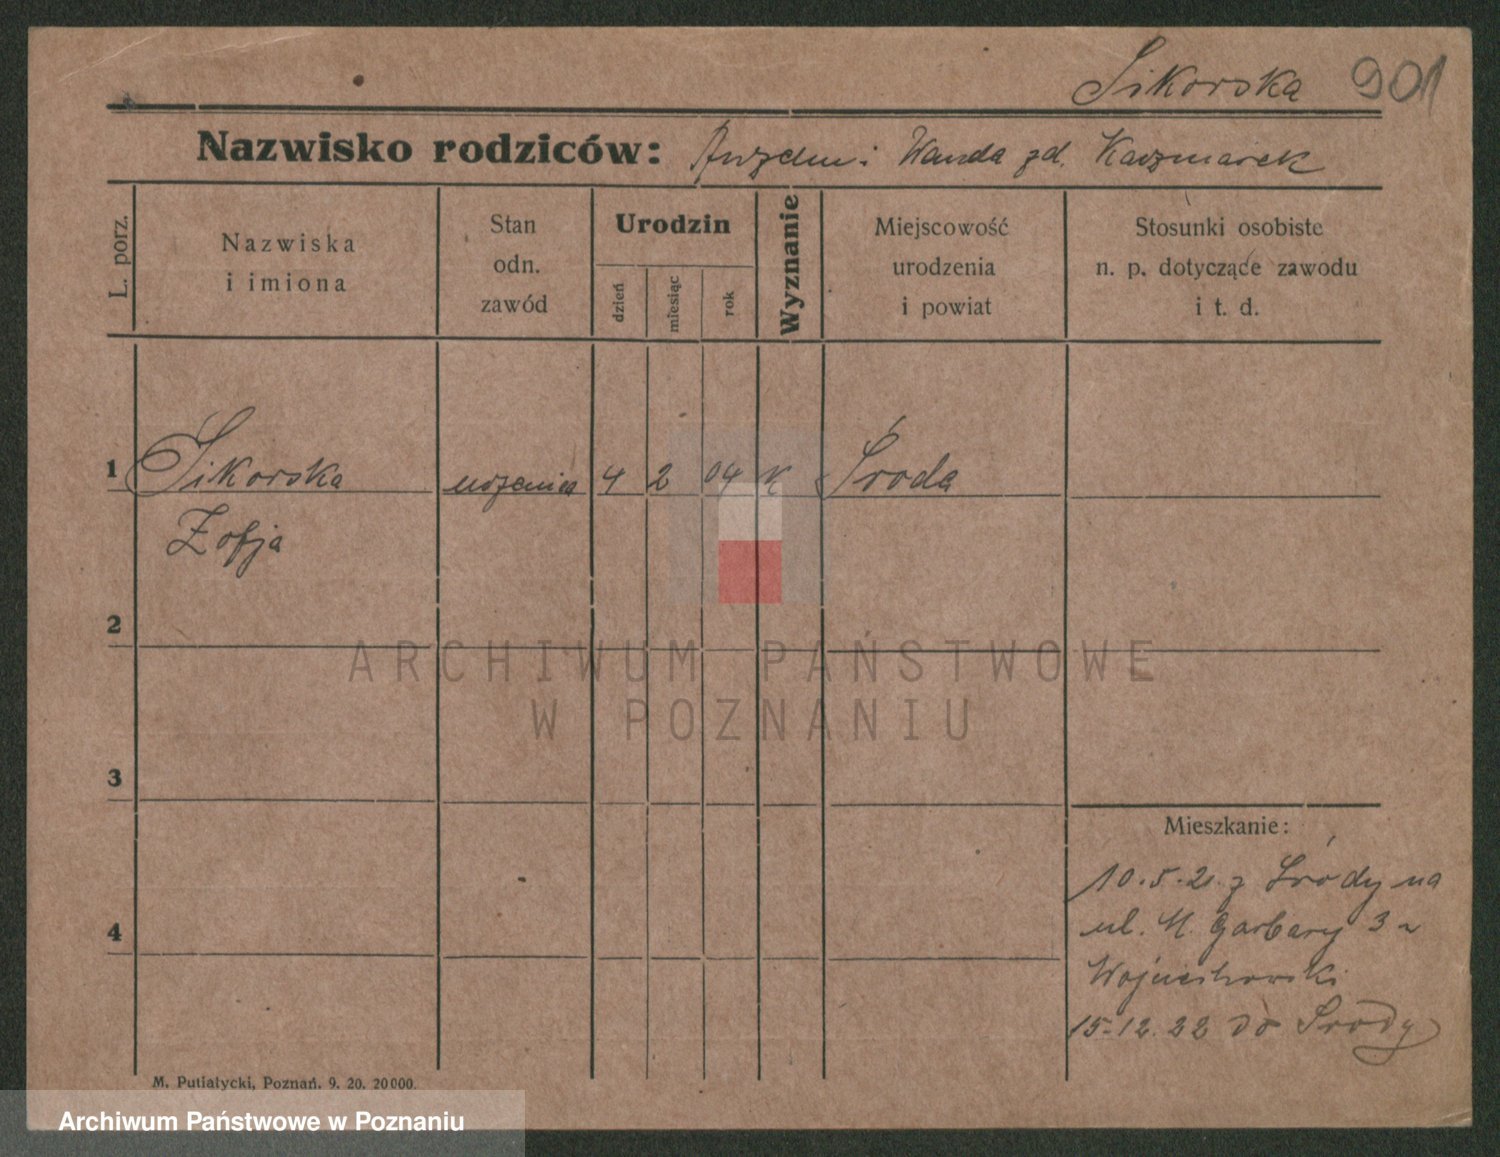 Sikorska 901
Nazwisko rodziców: i Wanda zd. Kaczmarek
L. porz.
Nazwiska
i imiona
Stan
odn.
zawód
Urodzin
dzień
miesiąc
rok
Wyznanie
Miejscowość
urodzenia
i powiat
Stosunki osobiste
n. p. dotyczące zawodu
i t. d.
1 Sikorska uczenica 4 2 04 K Środa
Zofja
2
ARCHIWUM PAŃSTWOWE
W POZNANIU
3
Mieszkanie:
10.5.21. z Środy na
4
ul. M. Garbary 3
Wojciechowski
15.12.22 do Środy
M. Putiatycki, Poznań. 9. 20. 20000.
Archiwum Państwowe w Poznaniu